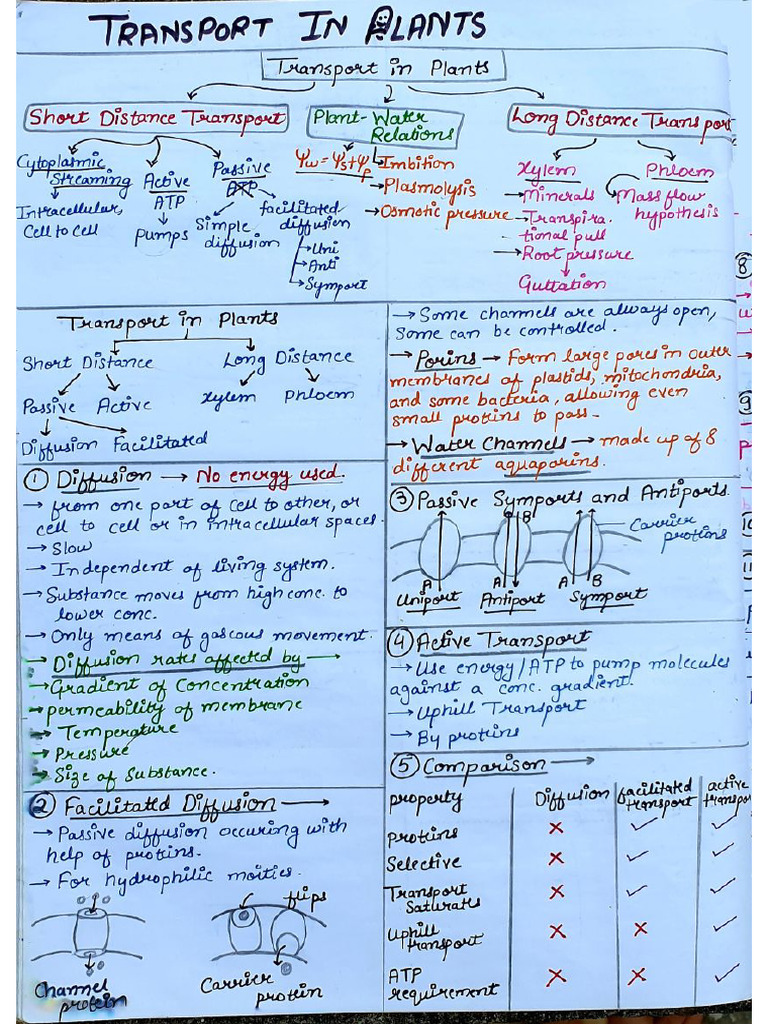 TRANSPORT IN PLANTS
Transport in Plants
Short Distance Transport
Plant-Water
Relations
Long Distance Transport
Cytoplasmic
Streaming
Intracellular,
Cell to cell
Active
ATP
Pumps
Passive
ATP
Simple
diffusion
facilitated
diffusion
→ Uni
→ Anti
→ Symport
Ψw = Ψs+Ψp
Imbition
→ Plasmolysis
→ Osmotic pressure
Xylem
→ Minerals
→ Transpira.
tional pull
→ Root pressure
Guttation
Phloem
Mass flow
hypothesis
Transport in Plants
Short Distance
Long Distance
Passive Active
Xylem Phloem
Diffusion Facilitated
① Diffusion → No energy used.
→ from one part of cell to other, or
cell to cell or in intracellular spaces.
→ Slow
→ Independent of living system.
→ Substance moves from high conc. to
lower conc.
→ Only means of gascous movement.
→ Diffusion rates affected by →
→ Gradient of Concentration
→ permeability of membrane
→ Temperature
→ Pressure
→ Size of Substance.
② Facilitated Diffusion →
→ Passive diffusion occuring with
help of protins.
→ For hydrophilic moities.
flips
Channel
protein
Carrier
protein
→ Some channels are always open,
Some can be controlled.
→ Porins → Form large pores in outer
membranes of plastids, mitochondria,
and some bacteria, allowing even
small protins to pass-
→ Water Channels → made up of 8
different aquaporins.
③ Passive Symports and Antiports.
B
Carrier
protins
A A A B
Uniport Antiport Symport
④ Active Transport
→ Use energy/ATP to pump molecules
against a conc. gradient.
→ Uphill Transport
→ By protins
⑤ Comparison →
property Diffusion facilitated
transport active
transpor
Protins × ✓ ✓
Selective × ✓ ✓
Transport
Saturates × ✓ ✓
Uphill
transport × × ✓
ATP
requirement × × ✓
⑧
⑨